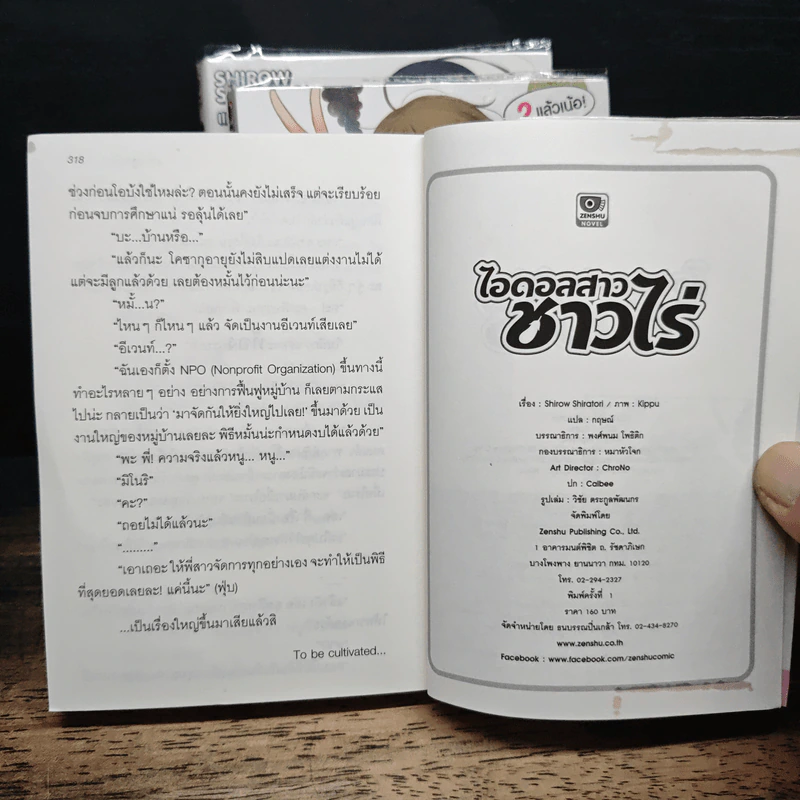 SHIROW
2 แล้วเน้อ!
318
ช่วงก่อนโอบ้งใช่ไหมล่ะ? ตอนนั้นคงยังไม่เสร็จ แต่จะเรียบร้อย
ก่อนจบการศึกษาแน่ รอลุ้นได้เลย"
"บะ...บ้านหรือ..."
"แล้วก็นะ โคซากุอายุยังไม่สิบแปดเลยแต่งงานไม่ได้
แต่จะมีลูกแล้วด้วย เลยต้องหมั้นไว้ก่อนน่ะนะ"
"หมั้...น?"
"ไหนๆ ก็ไหนๆ แล้ว จัดเป็นงานอีเวนท์เสียเลย"
"อีเวนท์...?"
"ฉันเองก็ตั้ง NPO (Nonprofit Organization) ขึ้นทางนี้
ทำอะไรหลายๆ อย่าง อย่างการฟื้นฟูหมู่บ้าน ก็เลยตามกระแส
ไปน่ะ กลายเป็นว่า 'มาจัดกันให้ยิ่งใหญ่ไปเลย!' ขึ้นมาด้วย เป็น
งานใหญ่ของหมู่บ้านเลยละ พิธีหมั้นน่ะกำหนดงบได้แล้วด้วย"
"พะ พี่! ความจริงแล้วหนู... หนู..."
"มิโนริ"
"คะ?"
"ถอยไม่ได้แล้วนะ"
"........."
"เอาเถอะ ให้พี่สาวจัดการทุกอย่างเอง จะทำให้เป็นพิธี
ที่สุดยอดเลยละ! แค่นี้นะ" (ฟุ่บ)
...เป็นเรื่องใหญ่ขึ้นมาเสียแล้วสิ
To be cultivated...
ZENSHU
NOVEL
ไอดอลสาว
ชาวไร่
เรื่อง : Shirow Shiratori / ภาพ : Kippu
แปล : กฤษณ์
บรรณาธิการ : พงศ์พนม โพธิดิก
กองบรรณาธิการ : หมาหัวโจก
Art Director : ChroNo
ปก : Calbee
รูปเล่ม : วิชัย ตระกูลพัฒนกร
จัดพิมพ์โดย
Zenshu Publishing Co., Ltd.
1 อาคารมนต์พิชิต ถ. รัชดาภิเษก
บางโพงพาง ยานนาวา กทม. 10120
โทร. 02-294-2327
พิมพ์ครั้งที่ 1
ราคา 160 บาท
จัดจำหน่ายโดย ธนบรรณปิ่นเกล้า โทร. 02-434-8270
www.zenshu.co.th
Facebook : www.facebook.com/zenshucomic